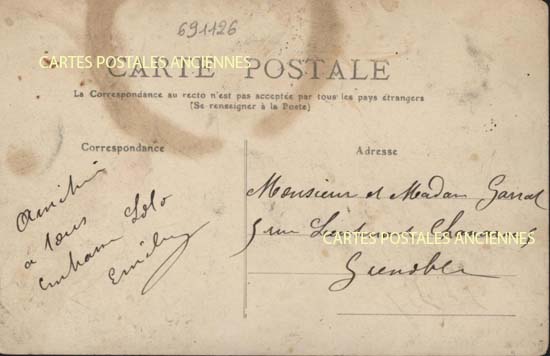 691126
CARTES POSTALES ANCIENNES
CARTE POSTALE
La Correspondance au recto n'est pas acceptée par tous les pays étrangers
(Se renseigner à la Poste)
Correspondance
Adresse
a tous
Lolo
Monsieur et Madam
5 rue
CARTES POSTALES ANCIENNES
Grenoble